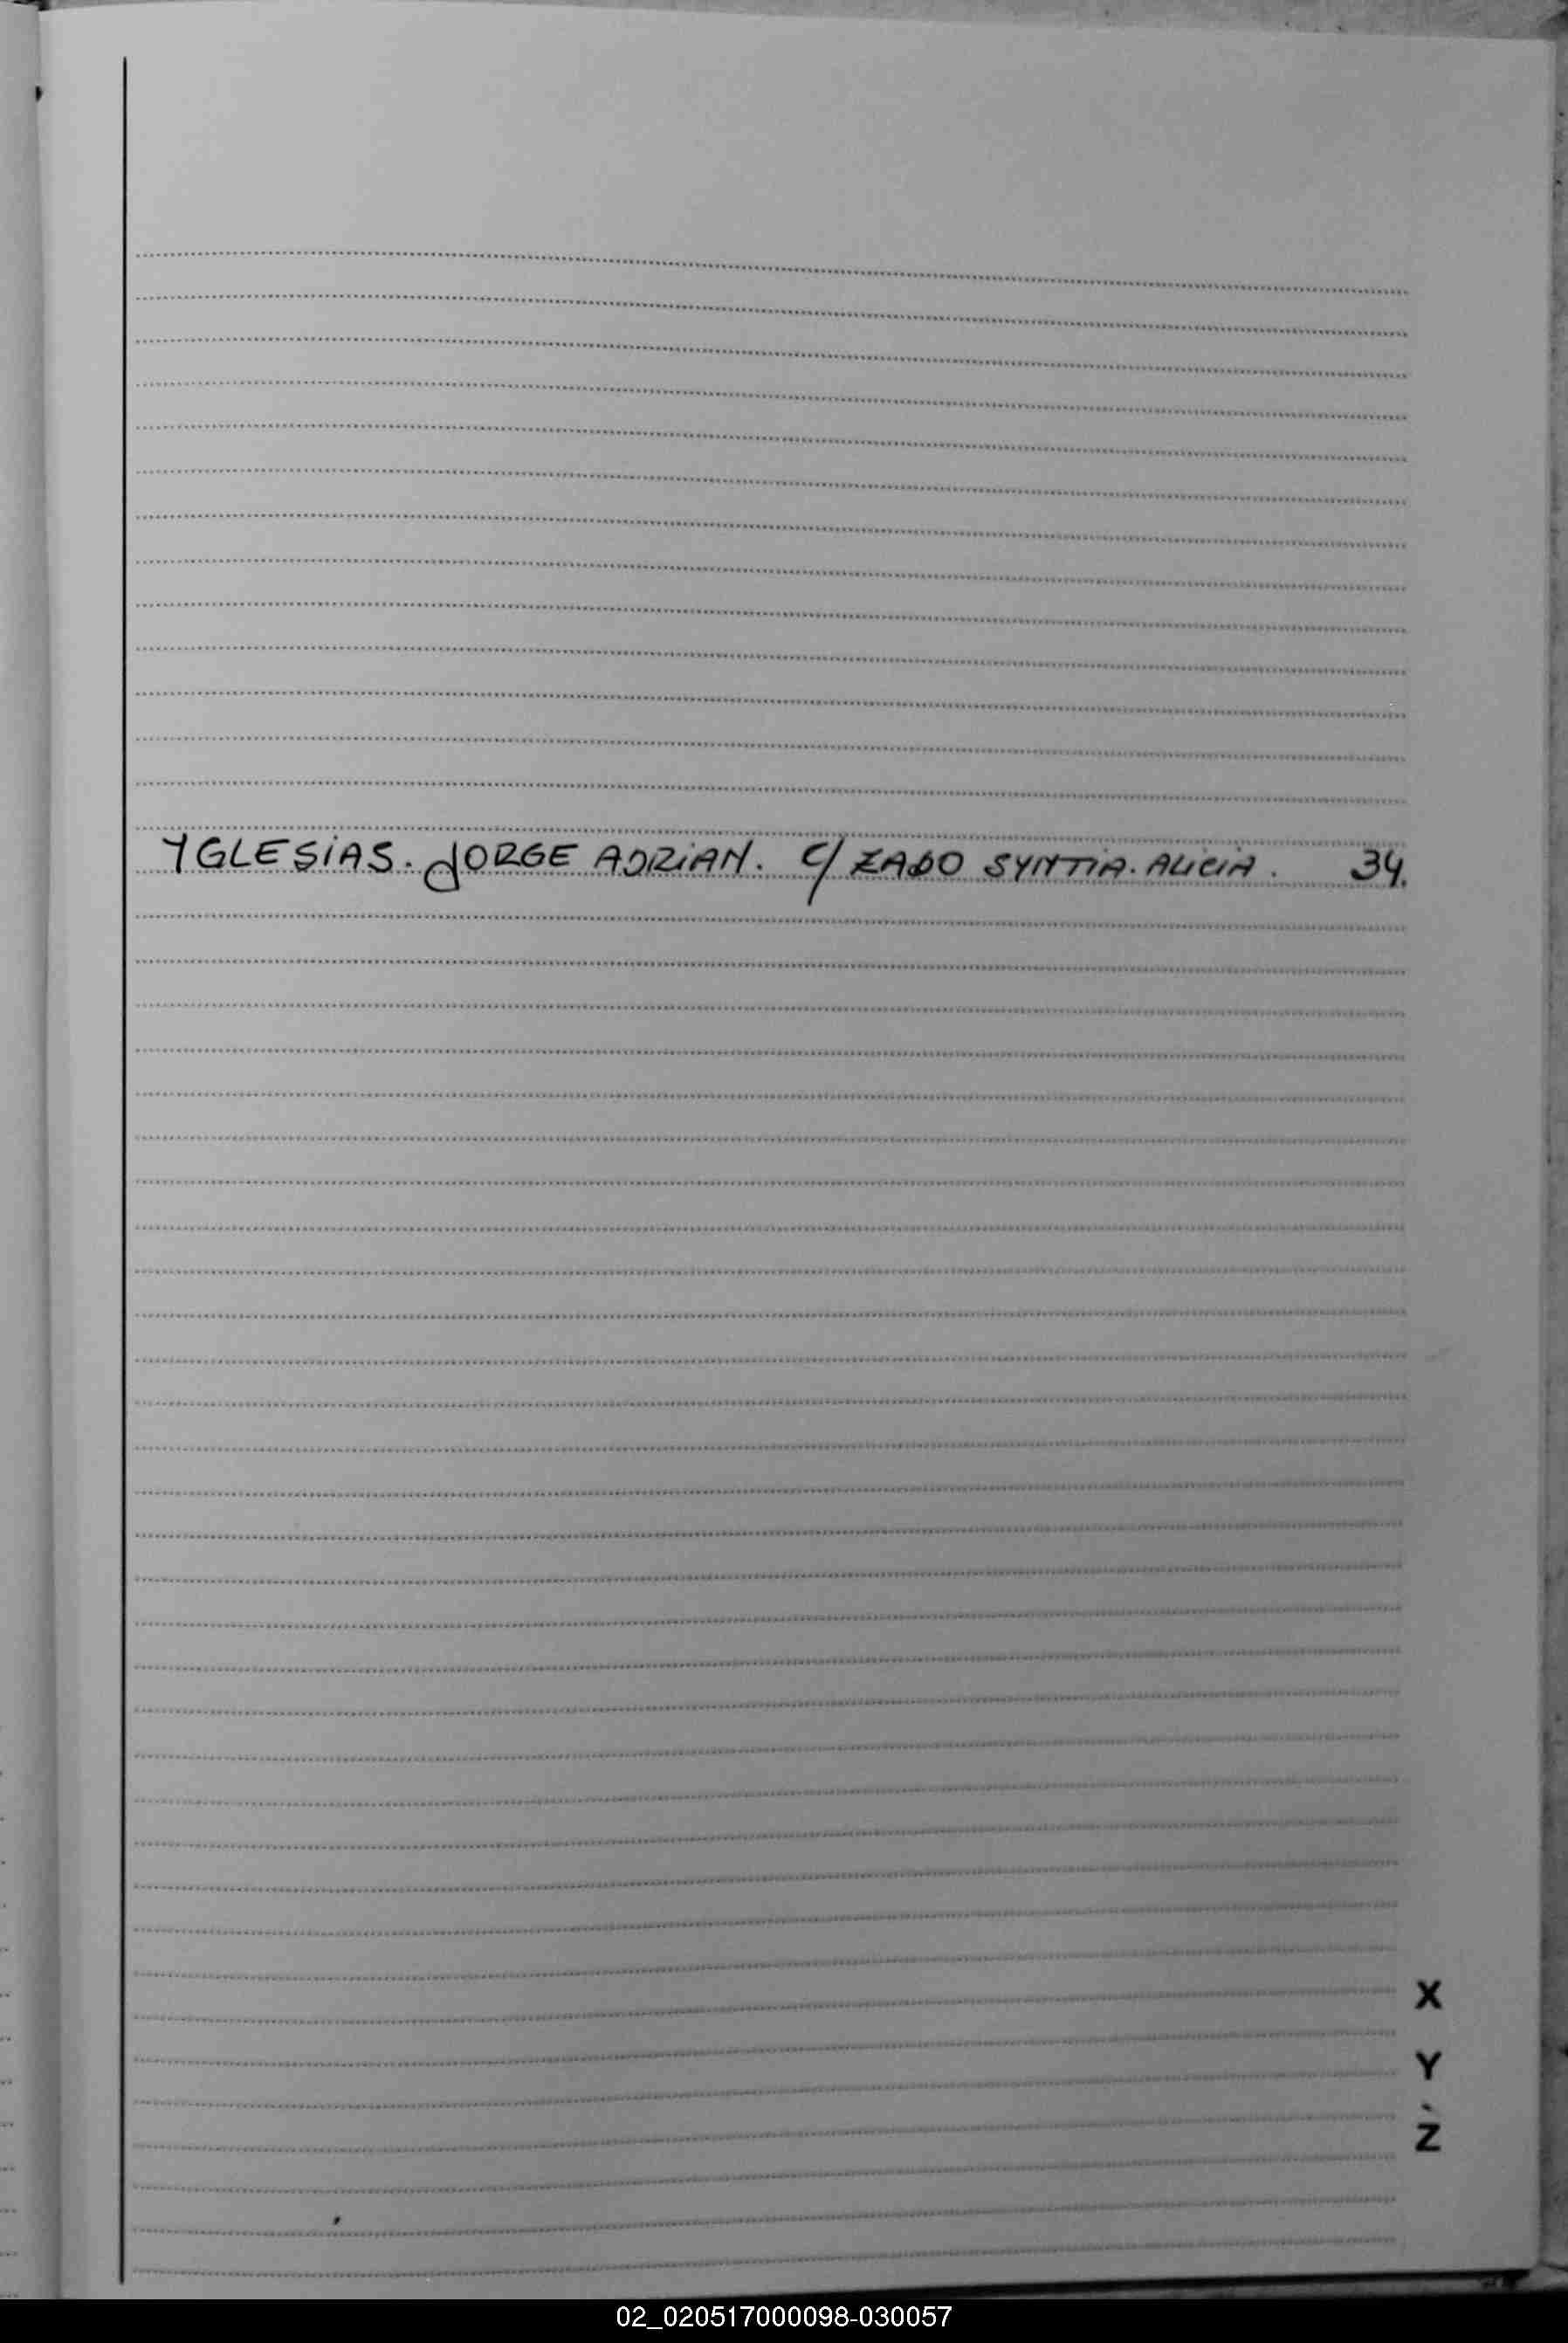 YGLESIAS. JORGE ADRIAN. C/ ZADO SYNTIA. ALICIA. 34.
X
Y
Z
02_020517000098-030057